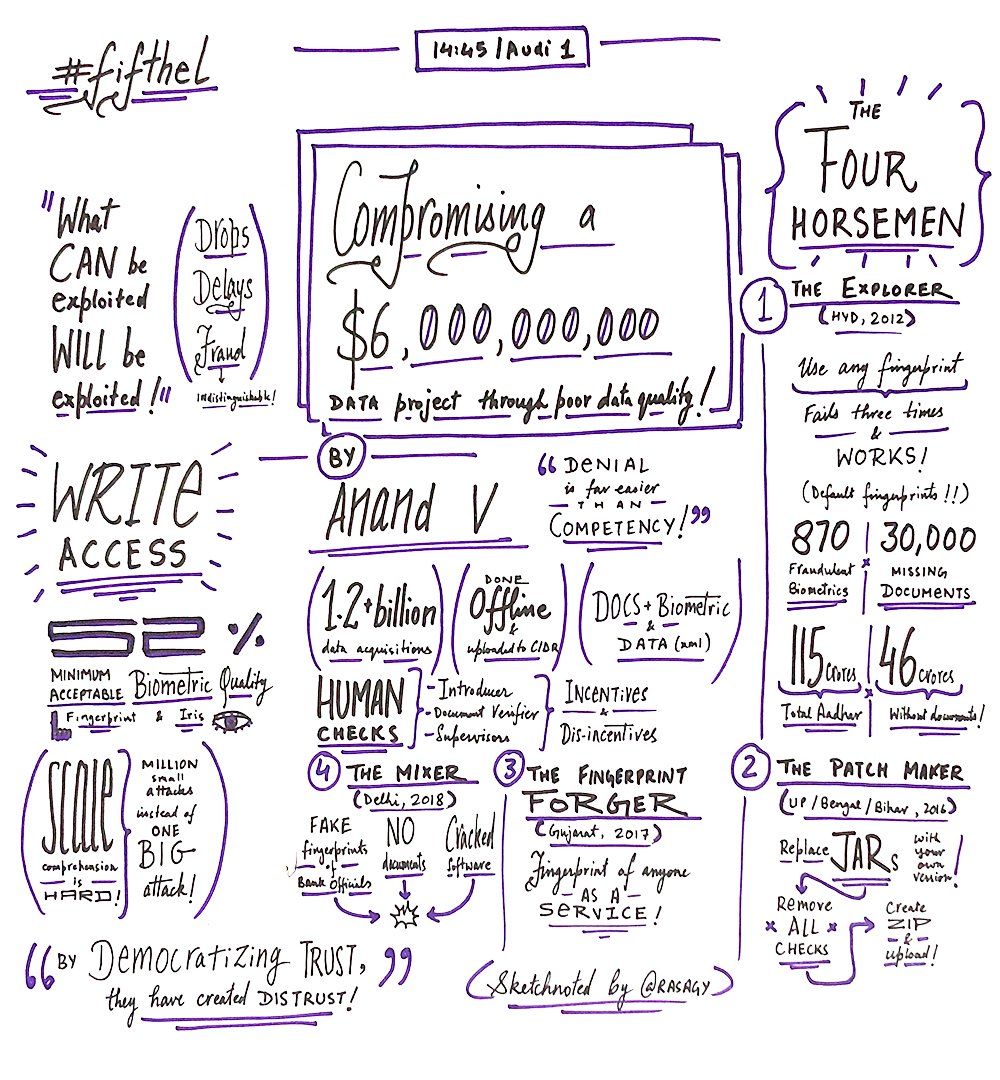 #fifthel
14:45 / Audi 1
Compromising a
$6,000,000,000
DATA project through poor data quality!
BY
Anand V
"DENIAL
is far easier
THAN
COMPETENCY!"
"What
CAN be
exploited
WILL be
exploited!"
Drops
Delays
Fraud
Indistinguishable!
WRITE
ACCESS
52 %
MINIMUM
ACCEPTABLE Biometric Quality
Fingerprint & Iris
SCALE
comprehension
is
HARD!
MILLION
small
attacks
instead of
ONE
BIG
attack!
1.2+ billion
data acquisitions
DONE
Offline
&
uploaded to CIDR
DOCS + Biometric
&
DATA (xml)
HUMAN
CHECKS
- Introducer
- Document Verifier
- Supervisors
INCENTIVES
&
Dis-incentives
THE
FOUR
HORSEMEN
1 THE EXPLORER
(HYD, 2012)
Use any fingerprint
Fails three times
&
WORKS!
(Default fingerprints!!)
870
Fraudulent
Biometrics
30,000
MISSING
DOCUMENTS
115 Crores
Total Aadhar
46 crores
Without documents!
2 THE PATCH MAKER
(UP/Bengal/Bihar, 2016)
Replace JARs with
your
own
version!
Remove
x ALL x
CHECKS
Create
ZIP
&
upload!
3 THE FINGERPRINT
FORGER
(Gujarat, 2017)
Fingerprint of anyone
AS A
SERVICE!
4 THE MIXER
(Delhi, 2018)
FAKE
fingerprints
of
Bank Officials
NO
documents
Cracked
Software
"BY Democratizing TRUST,
they have created DISTRUST!"
(Sketchnoted by @RASAGY)